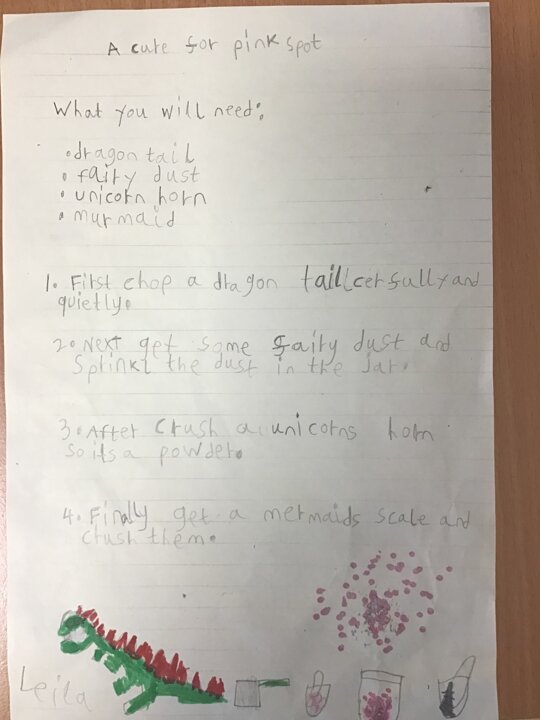 A cure for pink spot
What you will need:
• dragon tail
• fairy dust
• unicorn horn
• murmaid
1. First chop a dragon taill cerfully and
quietly.
2. Next get some fairy dust and
Sprinkl the dust in the jar.
3. After crush a unicorns horn
so its a powder.
4. Finally get a mermaids scale and
crush them.
Leila